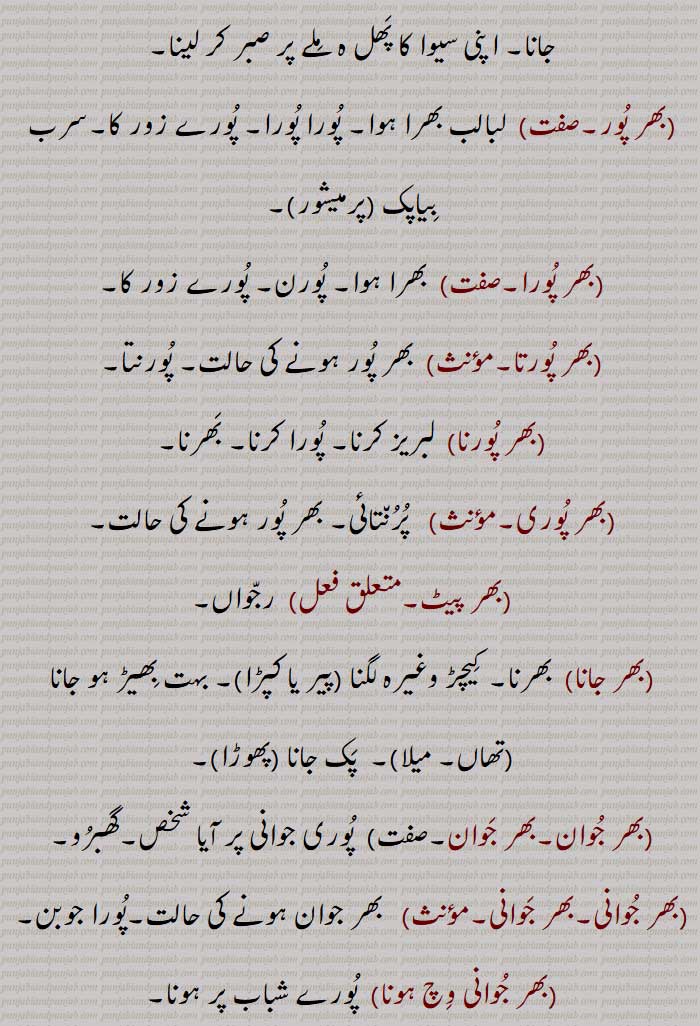 جانا۔ اپنی سیوا کا پَھل ہ مِلے پر صبر کر لینا۔
(بھر پُور۔صفت) لبالب بھرا ہوا۔ پُورا پُورا۔ پُورے زور کا۔سرب
بِیاپک (پرمیشور)۔
(بھر پُورا۔صفت) بھرا ہوا۔ پُورن۔ پُورے زور کا۔
(بھر پُورتا۔مؤنث) بھر پُور ہونے کی حالت۔ پُورنتا۔
(بھر پُورنا) لبریز کرنا۔ پُورا کرنا۔ بَھرنا۔
(بھر پُوری۔مؤنث) پُرُنّتائی۔ بھر پُور ہونے کی حالت۔
(بھر پیٹ۔متعلق فعل) رجّواں۔
(بھر جانا) بھرنا۔ کِیچڑ وغیرہ لگنا (پیر یا کپڑا)۔ بہت بِھیڑ ہو جانا
(تھاں۔ میلا)۔ پَک جانا (پھوڑا)۔
(بھر جُوان۔بھر جَوان۔صفت) پُوری جوانی پر آیا شخص۔گھبرُو۔
(بھر جُوانی۔بھر جَوانی۔مؤنث) بھر جوان ہونے کی حالت۔پُورا جوبن۔
(بھر جُوانی وِچ ہونا) پُورے شباب پر ہونا۔